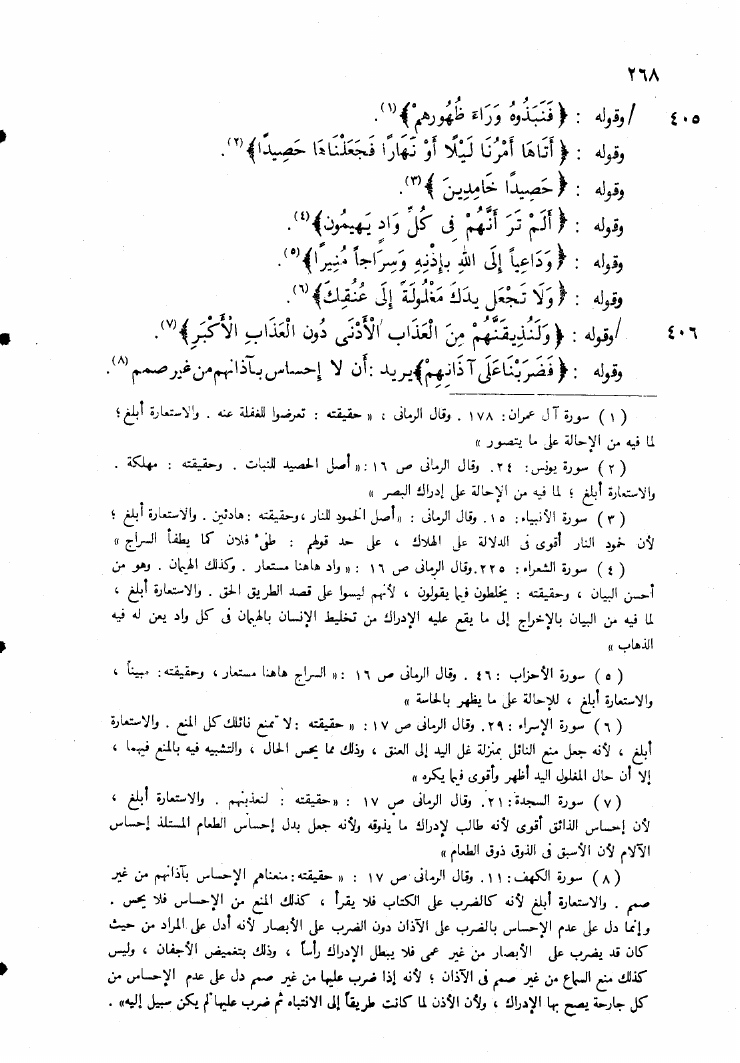 ٢٦٨
٤٠٥ /وقوله : ﴿ فَنَبَذُوهُ وَرَاءَ ظُهُورِهِمْ ﴾(١).
وقوله : ﴿ أَتَاهَا أَمْرُنَا لَيْلًا أَوْ نَهَارًا فَجَعَلْنَاهَا حَصِيدًا ﴾(٢).
وقوله : ﴿ حَصِيدًا خَامِدِينَ ﴾(٣).
وقوله : ﴿ أَلَمْ تَرَ أَنَّهُمْ فِى كُلِّ وَادٍ يَهِيمُون ﴾(٤).
وقوله : ﴿ وَدَاعِياً إِلَى اللهِ بِإِذْنِهِ وَسِرَاجاً مُنِيرًا ﴾(٥).
وقوله : ﴿ وَلَا تَجْعَل يدَكَ مَغْلُولَةً إِلَى عُنُقِكَ ﴾(٦).
٤٠٦ /وقوله : ﴿ وَلَنُذِيقَنَّهُمْ مِنَ الْعَذَابِ الْأَدْنَى دُونَ الْعَذَابِ الْأَكْبَرِ ﴾(٧).
وقوله : ﴿ فَضَرَبْنَا عَلَى آذَانِهِمْ ﴾ يريد : أن لا إحساس بآذانهم من غير صمم (٨).
( ١ ) سورة آل عمران : ١٧٨ . وقال الرمانى : « حقيقته : تعرضوا للغفلة عنه . والاستعارة أبلغ ؛
لما فيه من الإحالة على ما يتصور »
( ٢ ) سورة يونس : ٢٤. وقال الرمانى ص ١٦ : « أصل الحصيد للنبات . وحقيقته : مهلكة .
والاستعارة أبلغ ؛ لما فيه من الإحالة على إدراك البصر »
( ٣ ) سورة الأنبياء : ١٥. وقال الرمانى : « أصل الخمود للنار ، وحقيقته : هادئين . والاستعارة أبلغ ؛
لأن خمود النار أقوى فى الدلالة على الهلاك ، على حد قولهم : طفىء فلان كما يطفأ السراج »
( ٤ ) سورة الشعراء : ٢٢٥. وقال الرمانى ص ١٦ : « واد هاهنا مستعار . وكذلك الهيمان . وهو من
أحسن البيان ، وحقيقته : يخلطون فيما يقولون ، لأنهم ليسوا على قصد الطريق الحق . والاستعارة أبلغ ،
لما فيه من البيان بالإخراج إلى ما يقع عليه الإدراك من تخليط الإنسان بالهيمان فى كل واد يعن له فيه
الذهاب »
( ٥ ) سورة الأحزاب : ٤٦ . وقال الرمانى ص ١٦ : « السراج هاهنا مستعار ، وحقيقته : مبيناً ،
والاستعارة أبلغ ، للإحالة على ما يظهر بالحاسة »
( ٦ ) سورة الإسراء : ٢٩. وقال الرمانى ص ١٧ : « حقيقته : لا تمنع نائلك كل المنع . والاستعارة
أبلغ ، لأنه جعل منع النائل بمنزلة غل اليد إلى العنق ، وذلك مما يحس الحال ، والتشبيه فيه بالمنع فيهما ،
إلا أن حال المغلول اليد أظهر وأقوى فيما يكره »
( ٧ ) سورة السجدة : ٢١. وقال الرمانى ص ١٧ : « حقيقته : لنعذبنهم . والاستعارة أبلغ ،
لأن إحساس الذائق أقوى لأنه طالب لإدراك ما يذوقه ولأنه جعل بدل إحساس الطعام المستلذ إحساس
الآلام لأن الأسبق فى الذوق ذوق الطعام »
( ٨ ) سورة الكهف : ١١. وقال الرمانى ص ١٧ : « حقيقته : منعناهم الإحساس بآذانهم من غير
صمم . والاستعارة أبلغ لأنه كالضرب على الكتاب فلا يقرأ ، كذلك المنع من الإحساس فلا يحس .
وإنما دل على عدم الإحساس بالضرب على الآذان دون الضرب على الأبصار لأنه أدل على المراد من حيث
كان قد يضرب على الأبصار من غير عمى فلا يبطل الإدراك رأساً ، وذلك بتغميض الأجفان ، وليس
كذلك منع السماع من غير صمم فى الآذان ؛ لأنه إذا ضرب عليها من غير صمم دل على عدم الإحساس من
كل جارحة يصح بها الإدراك ، ولأن الأذن لما كانت طريقاً إلى الانتباه ثم ضرب عليها لم يكن سبيل إليه » .